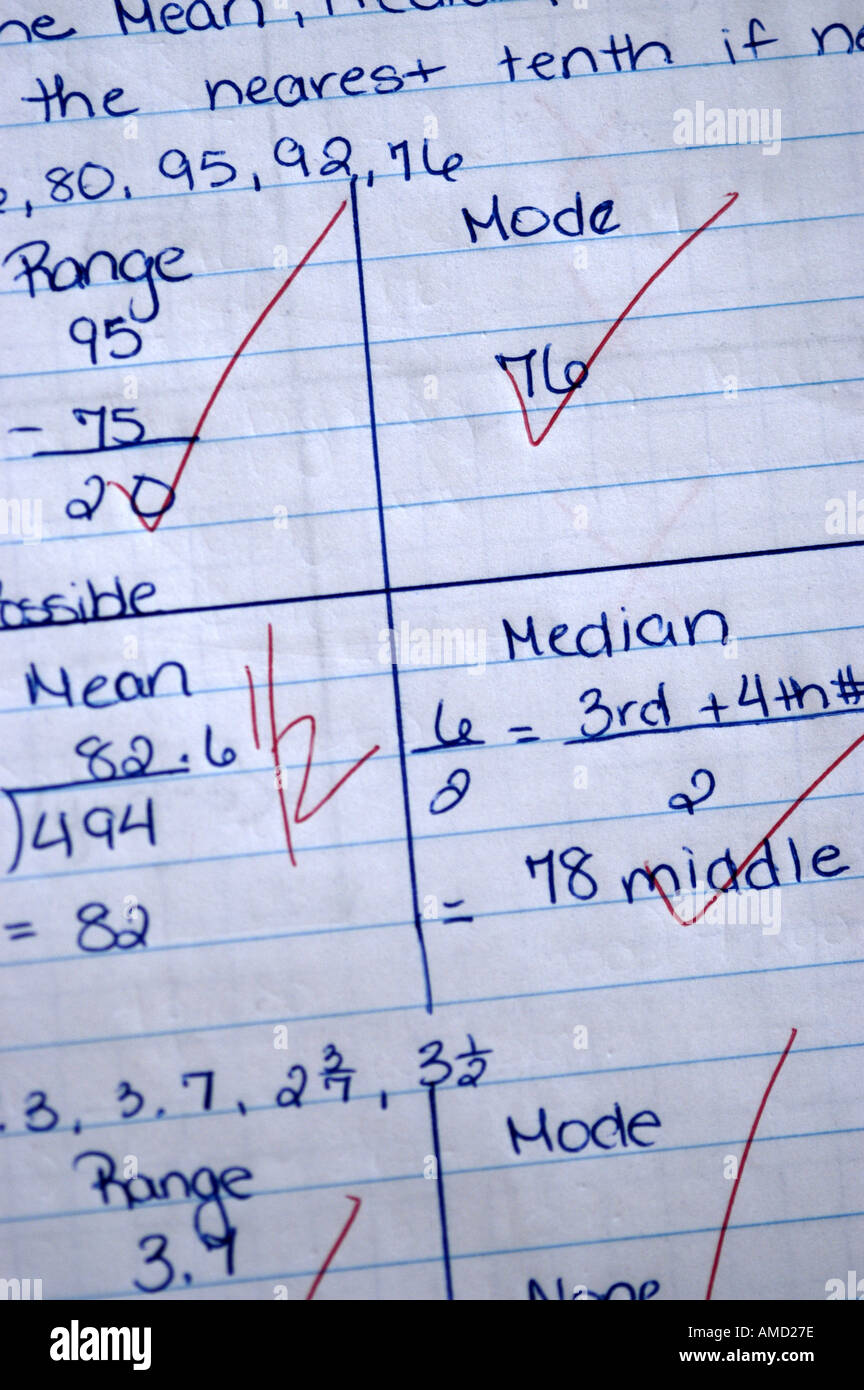 the Mean, Median,
the nearest tenth if
, 80, 95, 92, 76
Range
95
- 75
20
Mode
76
Possible
Mean
82.6
494
= 82
1/2
Median
6/2 = 3rd + 4th #/2
= 78 middle
.3, 3.7, 2 3/7, 3 1/2
Range
3.7
Mode
None
alamy
Image ID: AMD27E
www.alamy.com